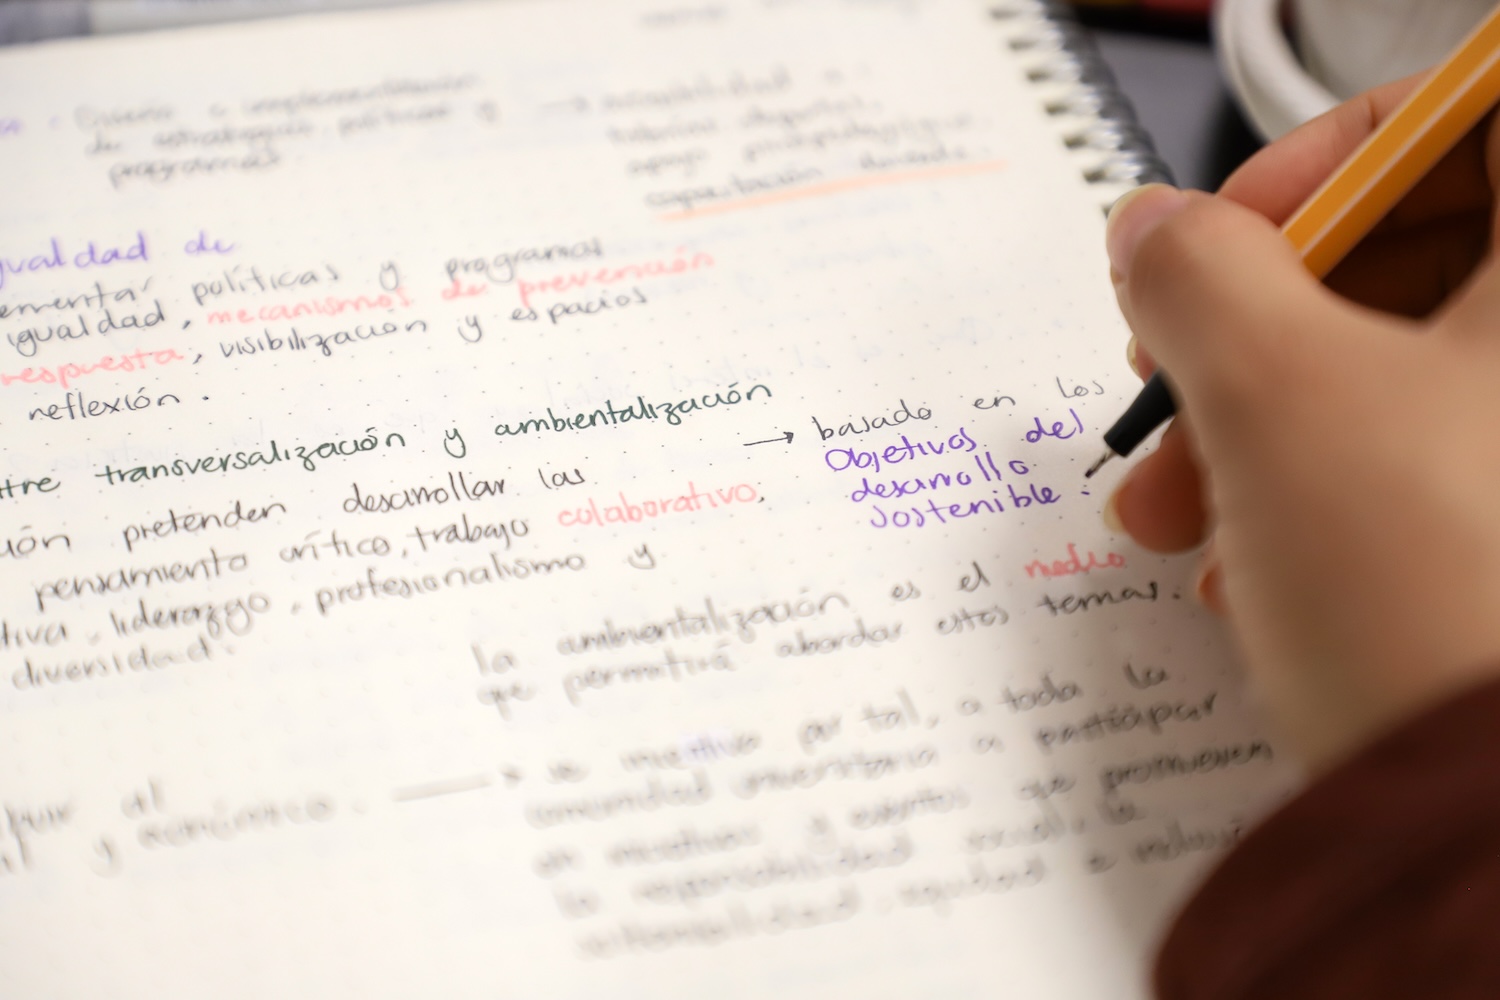 Diseño e implementación
de estrategias, políticas y
programas.
→ accesibilidad
apoyo psicopedagógico
capacitación docente.
gualdad de
ementar políticas y programas
igualdad, mecanismos de prevención
respuesta, visibilización y espacios
reflexión.
ntre transversalización y ambientalización
ión pretenden desarrollar las
pensamiento crítico, trabajo colaborativo,
tiva, liderazgo, profesionalismo y
diversidad.
→ basado en los
Objetivos del
desarrollo
sostenible:
la ambientalización es el medio
que permitirá abordar estos temas.
al
y económico.
→ se motiva por tal, a toda la
comunidad universitaria a participar
en y eventos que promueven
la responsabilidad social, la
equidad e